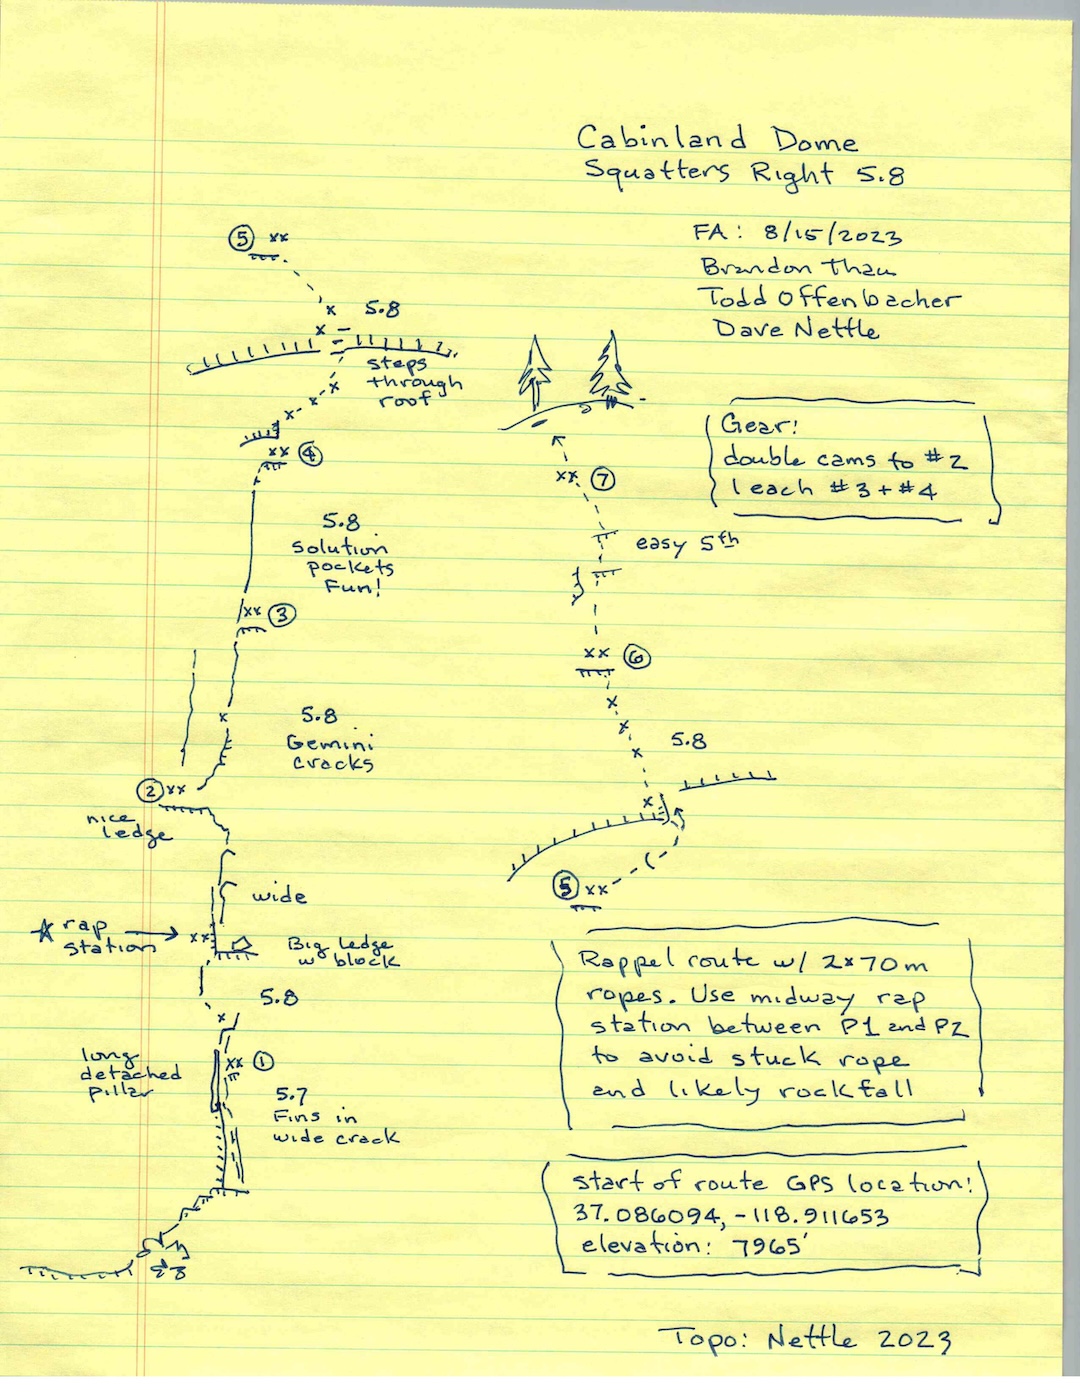 Cabinland Dome
Squatters Right 5.8
FA: 8/15/2023
Brandon Thau
Todd Offenbacher
Dave Nettle
Gear:
double cams to #2
1 each #3 + #4
5 xx
5.8
steps
through
roof
xx 4
5.8
solution
pockets
Fun!
xx 3
5.8
Gemini
cracks
2 xx
nice
ledge
wide
rap
station
xx
Big ledge
w block
5.8
long
detached
pillar
xx 1
5.7
Fins in
wide crack
xx 7
easy 5th
xx
6
5.8
5 xx
Rappel route w/ 2x70m
ropes. Use midway rap
station between P1 and P2
to avoid stuck rope
and likely rockfall
start of route GPS location:
37.086094, -118.911653
elevation: 7965'
Topo: Nettle 2023